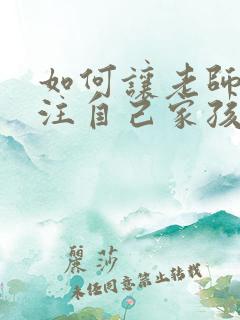 如何讓老師
注自己家孩
麗莎
未经同意禁止转载